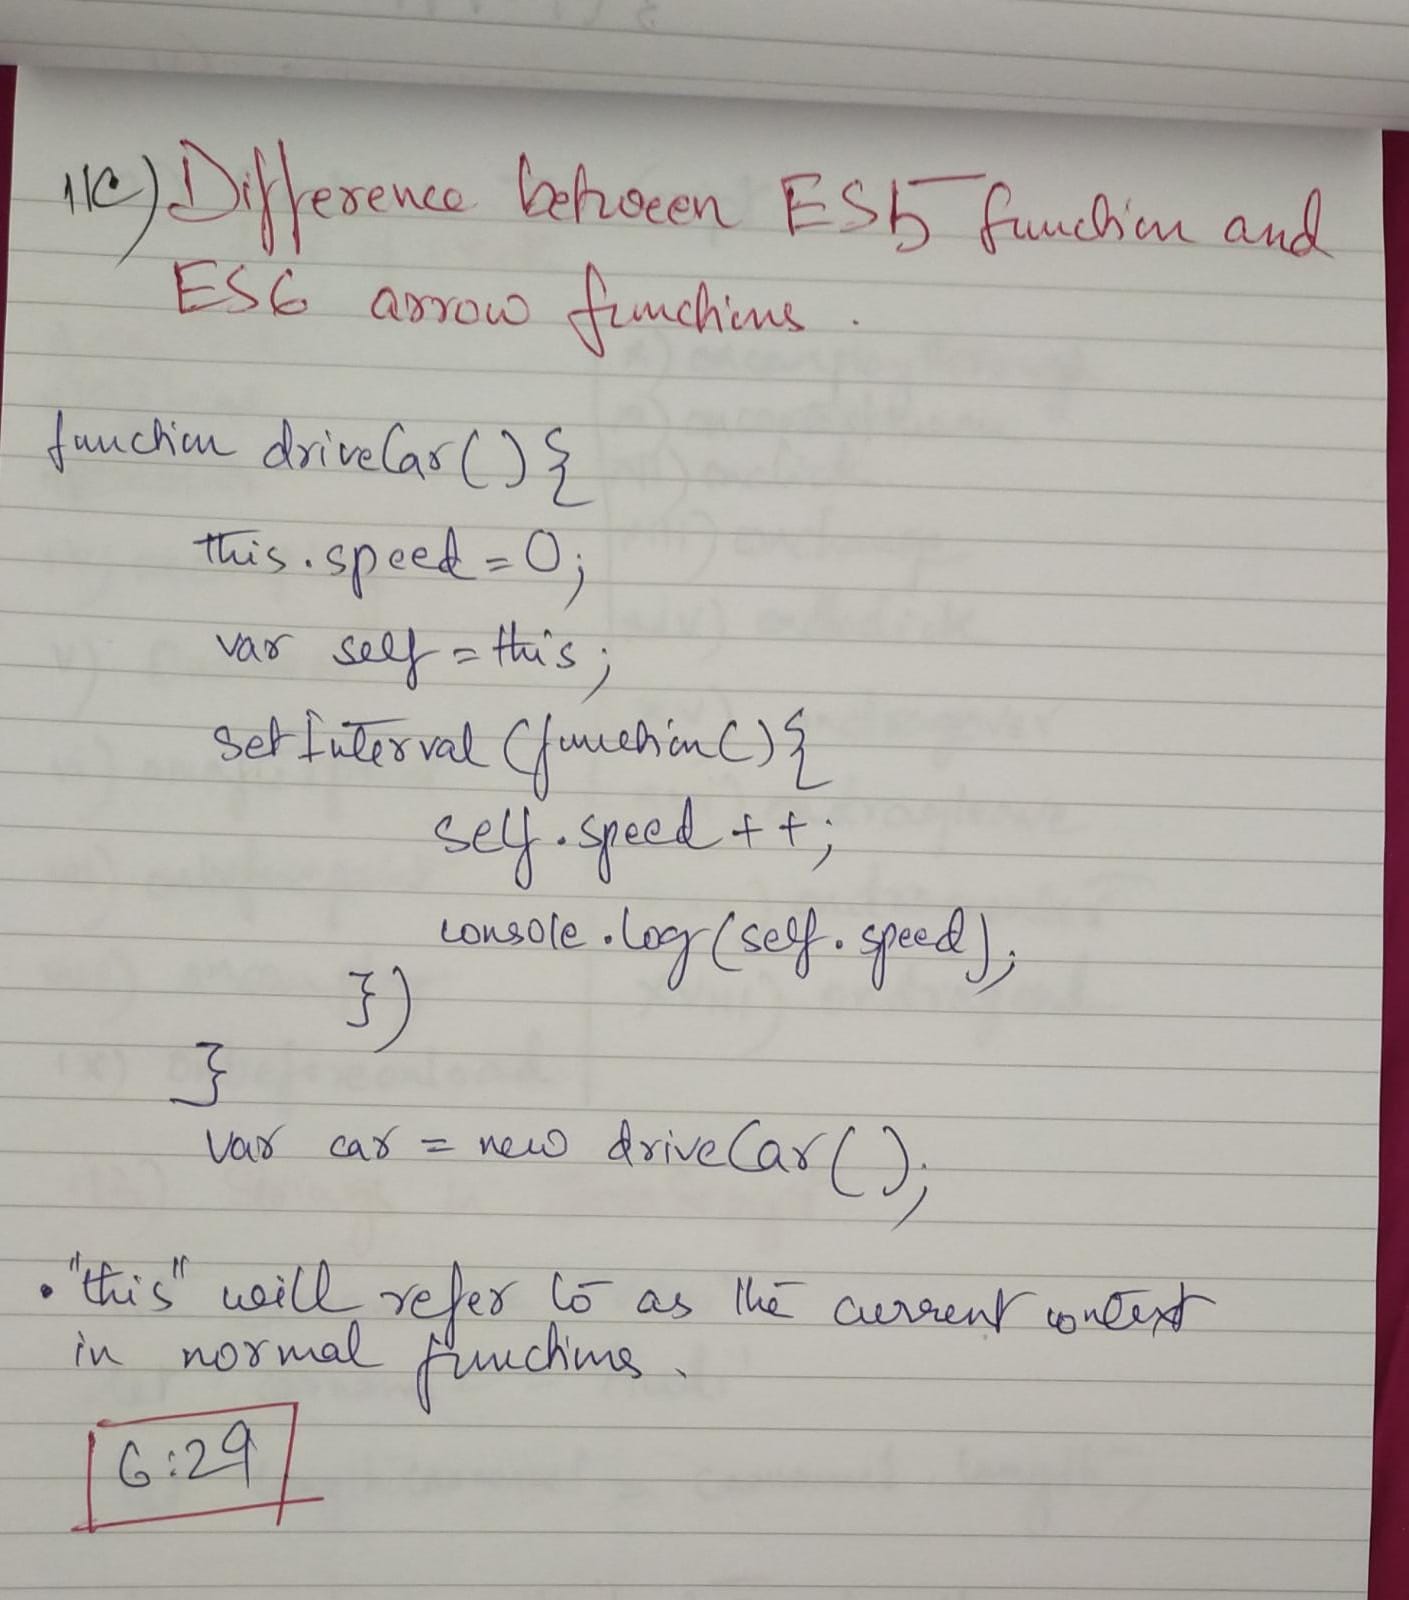 11c) Difference between ES5 function and
ES6 arrow functions.
function driveCar() {
this.speed = 0;
var self = this;
setInterval (function() {
self.speed ++;
console.log(self.speed);
})
}
var car = new driveCar();
• "this" will refer to as the current context
in normal functions.
6:29